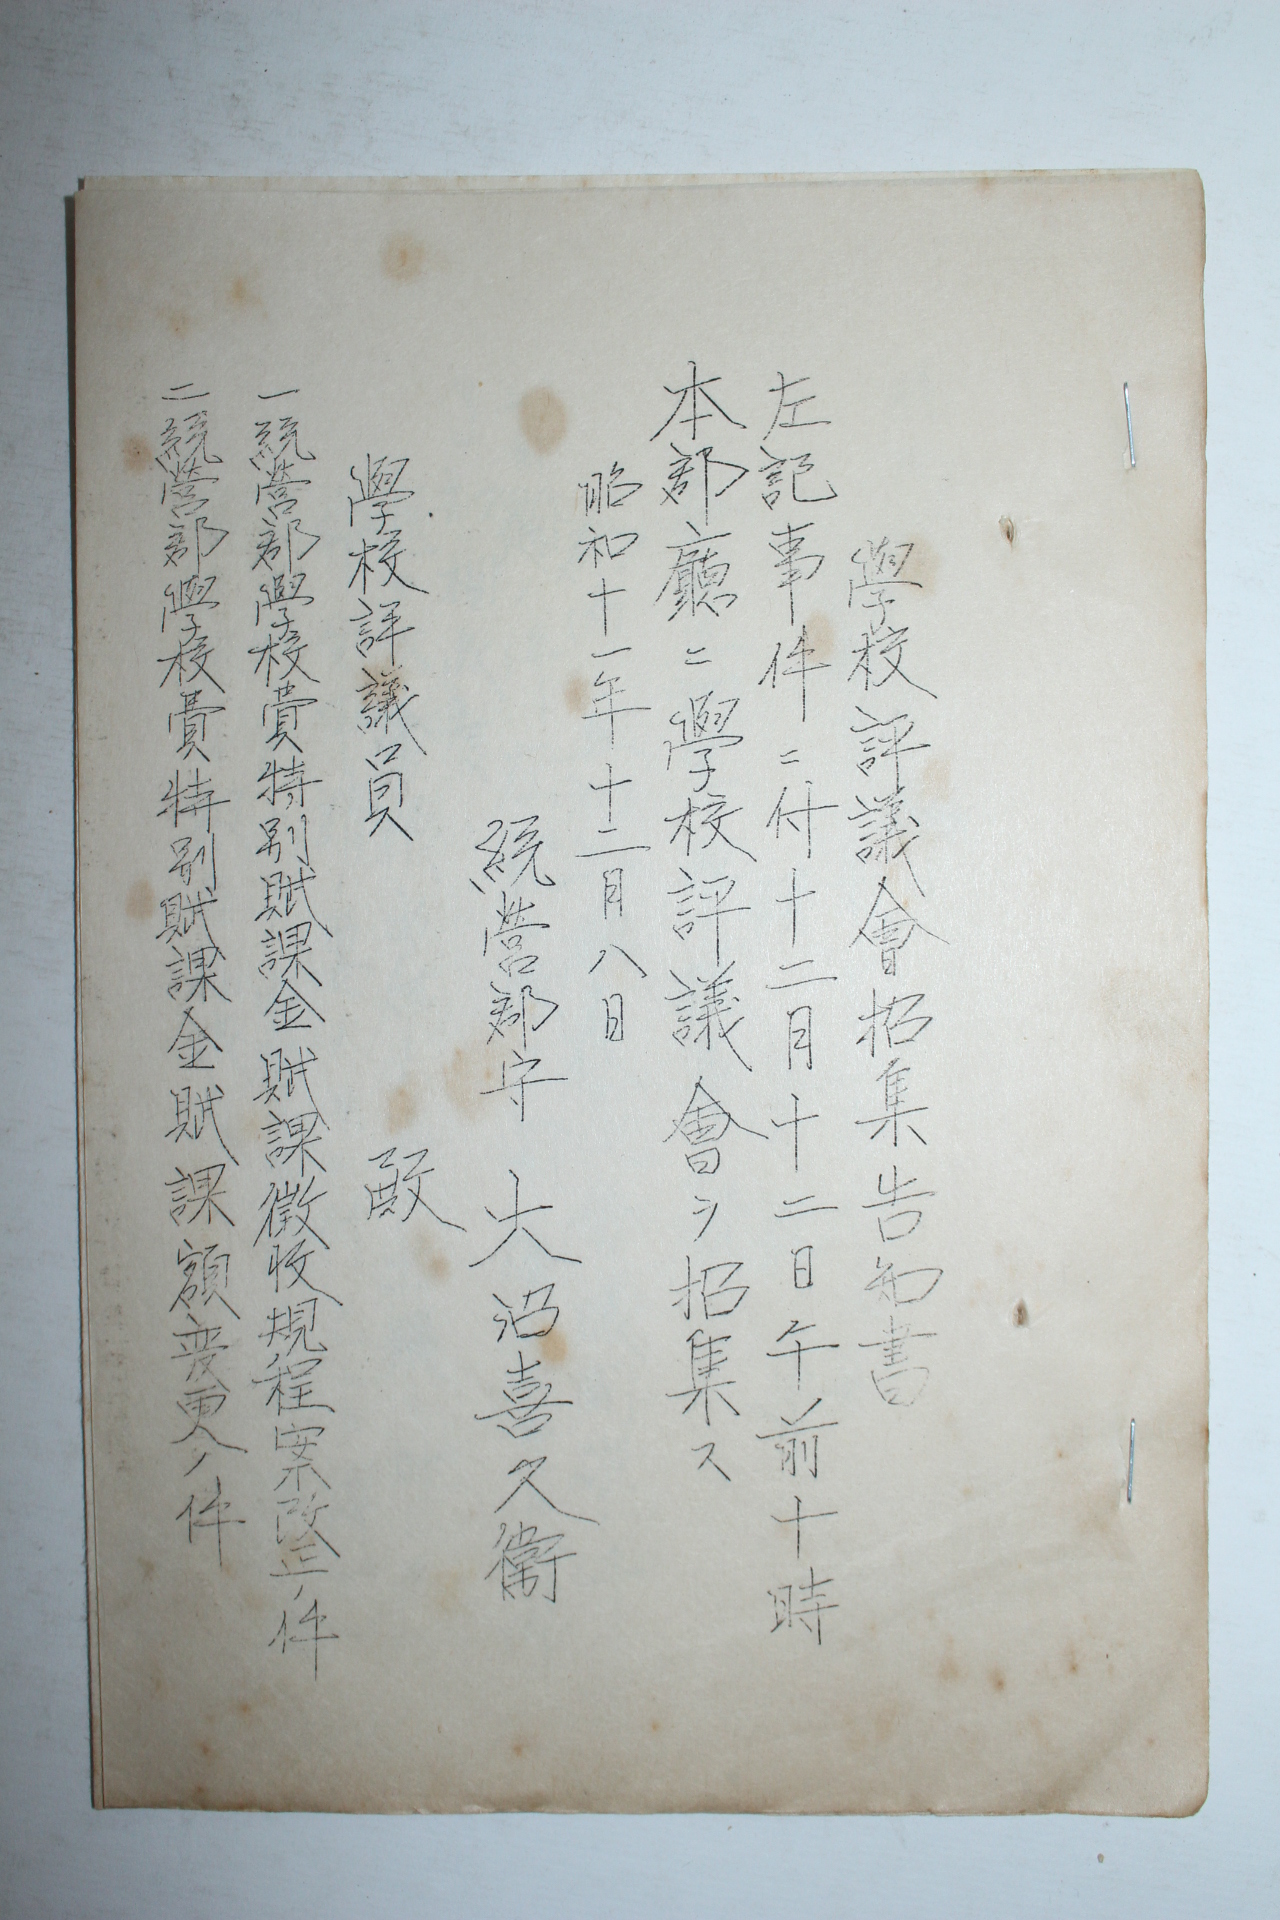 學校評議會招集告知書
左記事件ニ付十二月十二日午前十時
本郡廳ニ學校評議會ヲ招集ス
昭和十一年十二月八日
統營郡守 大沼喜久衛
學校評議員 殿
一統營郡學校費特別賦課金賦課徵收規程案改正ノ件
二統營郡學校費特別賦課金賦課額変更ノ件